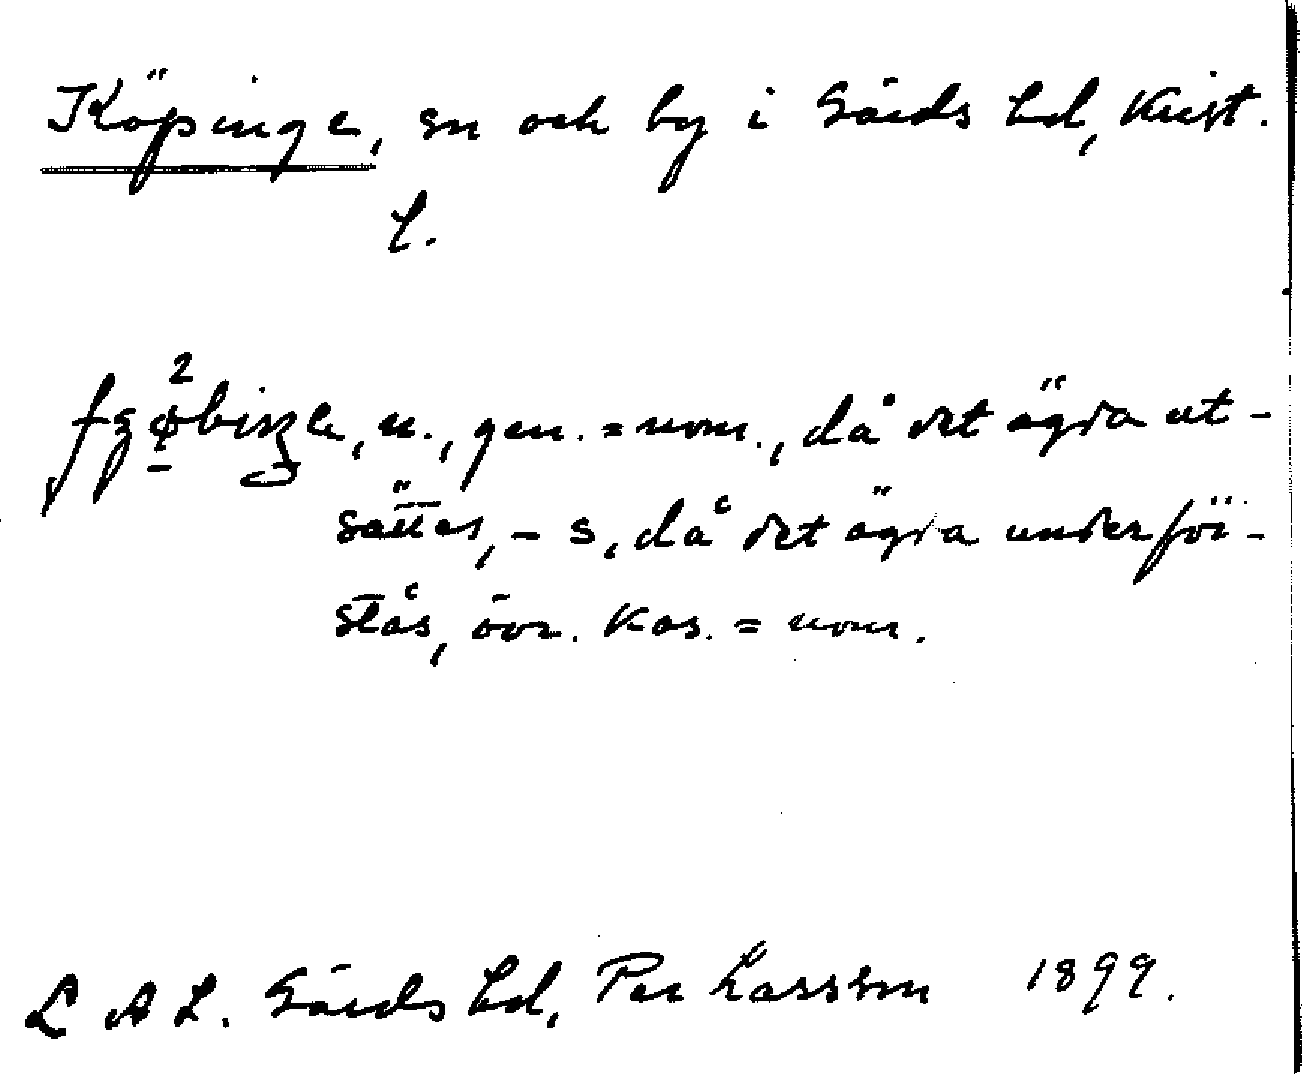 Köpinge, sn och by i Gärds hd, Krist.
l.
n., gen. = nom., då det ägda ut-
sättes, - s, då det ägda underför-
stås, övr. kas. = nom.
L A L. Gärds hd, Per Larsson 1899.